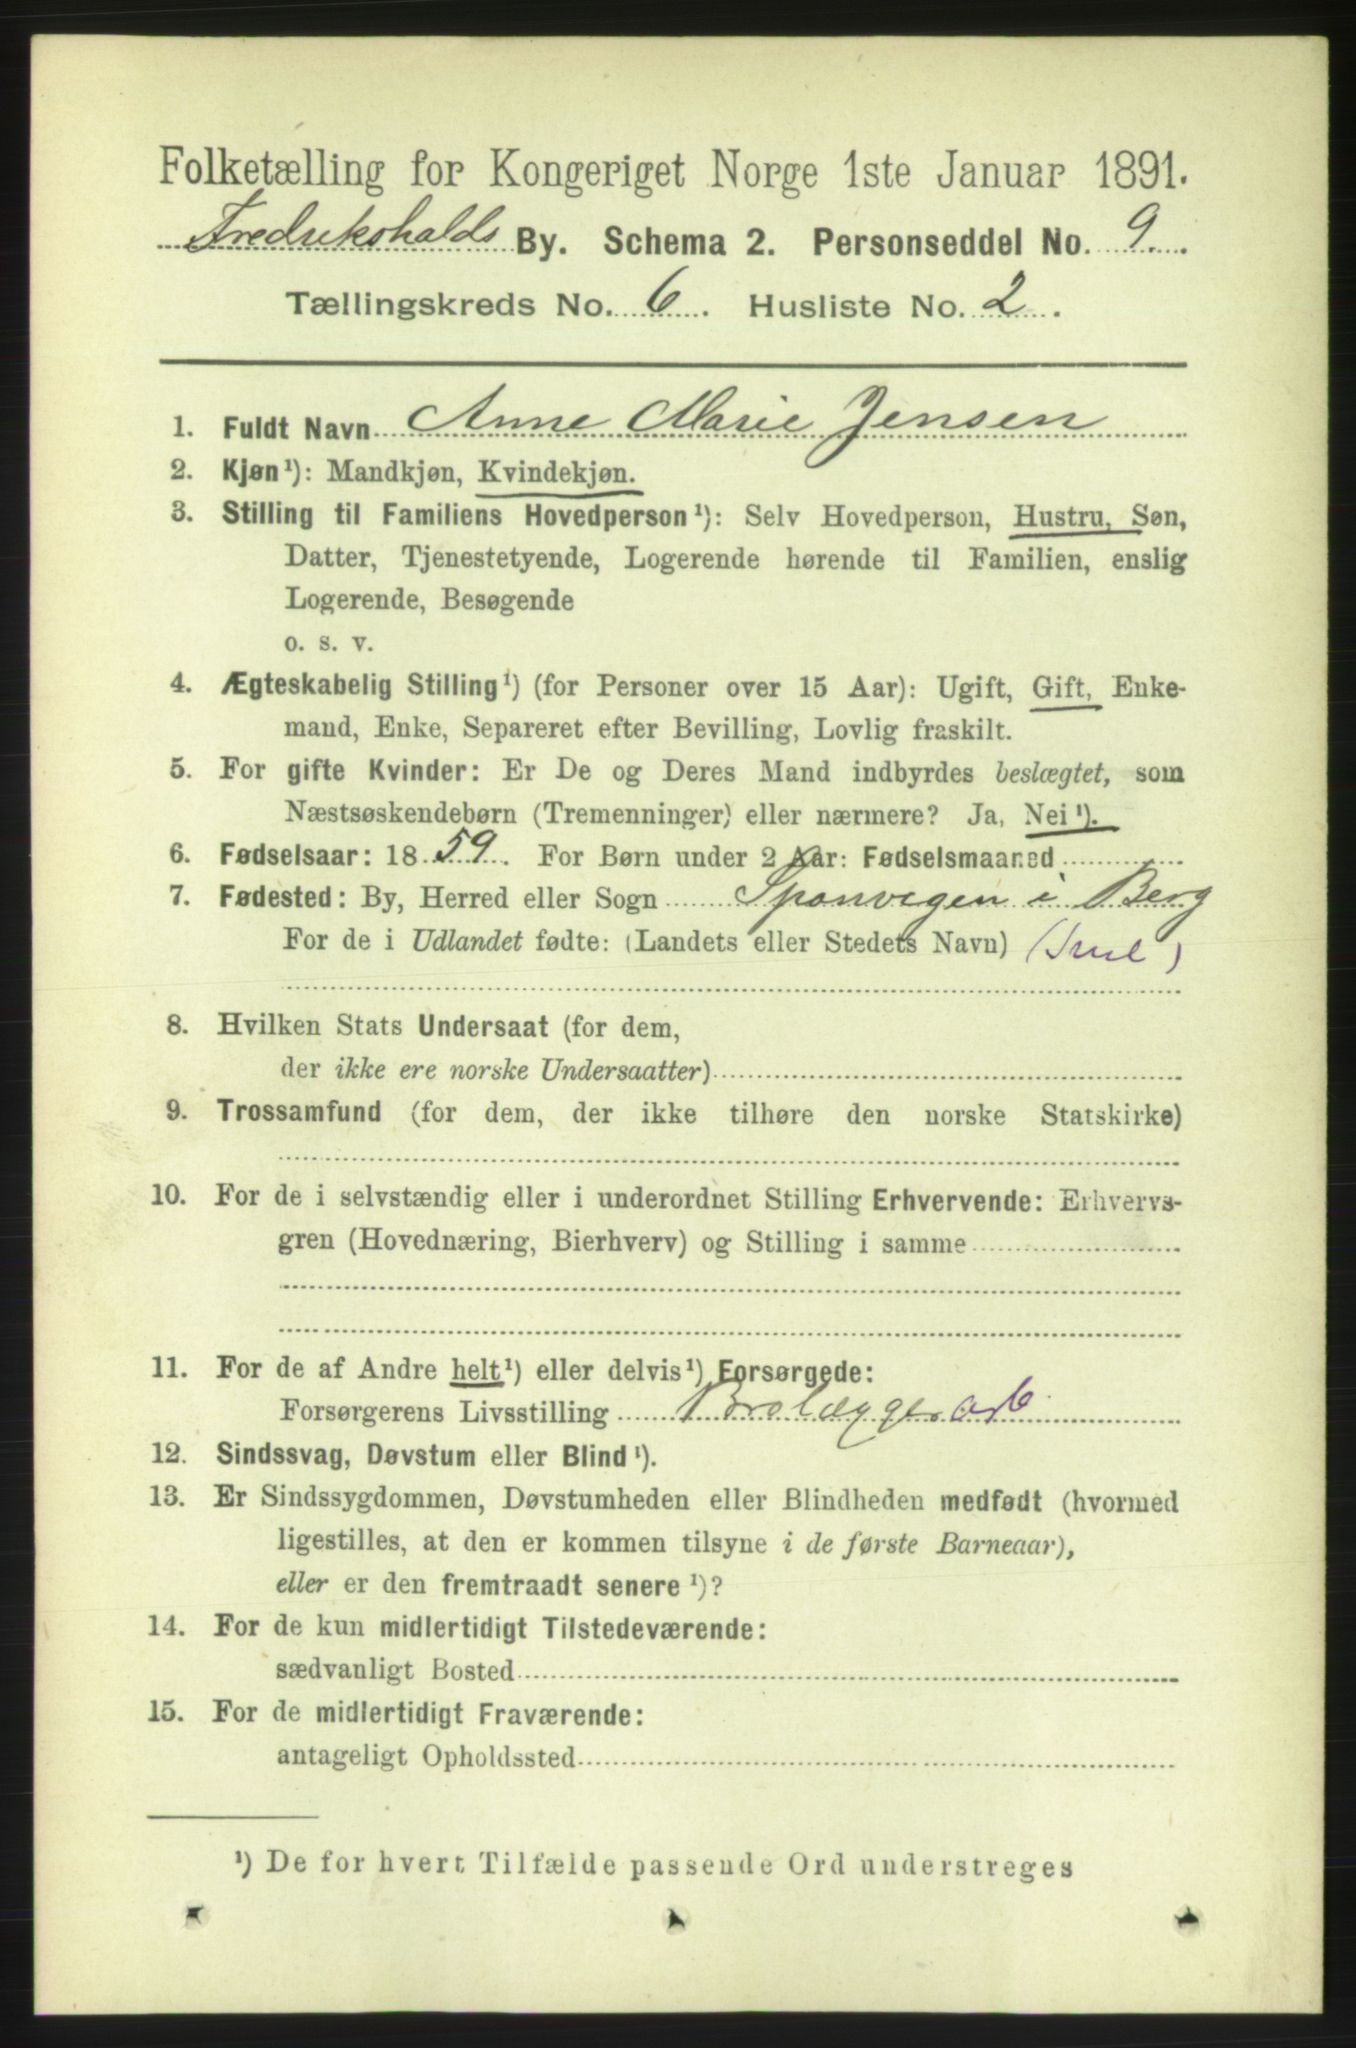 Folketælling for Kongeriget Norge 1ste Januar 1891.
Fredrikshalds By. Schema 2. Personseddel No. 9.
Tællingskreds No. 6. Husliste No. 2.
1. Fuldt Navn Anne Marie Jensen
2. Kjøn¹): Mandkjøn, Kvindekjøn.
3. Stilling til Familiens Hovedperson¹): Selv Hovedperson, Hustru, Søn,
Datter, Tjenestetyende, Logerende hørende til Familien, enslig
Logerende, Besøgende
o. s. v.
4. Ægteskabelig Stilling¹) (for Personer over 15 Aar): Ugift, Gift, Enke-
mand, Enke, Separeret efter Bevilling, Lovlig fraskilt.
5. For gifte Kvinder: Er De og Deres Mand indbyrdes beslægtet, som
Næstsøskendebørn (Tremenninger) eller nærmere? Ja, Nei¹).
6. Fødselsaar: 1859. For Børn under 2 Aar: Fødselsmaaned
7. Fødested: By, Herred eller Sogn Sponvigen i Berg
For de i Udlandet fødte: (Landets eller Stedets Navn)
8. Hvilken Stats Undersaat (for dem,
der ikke ere norske Undersaatter)
9. Trossamfund (for dem, der ikke tilhøre den norske Statskirke)
10. For de i selvstændig eller i underordnet Stilling Erhvervende: Erhvervs-
gren (Hovednæring, Bierhverv) og Stilling i samme
11. For de af Andre helt¹) eller delvis¹) Forsørgede:
Forsørgerens Livsstilling Brolæggerarb
12. Sindssvag, Døvstum eller Blind¹).
13. Er Sindssygdommen, Døvstumheden eller Blindheden medfødt (hvormed
ligestilles, at den er kommen tilsyne i de første Barneaar),
eller er den fremtraadt senere¹)?
14. For de kun midlertidigt Tilstedeværende:
sædvanligt Bosted
15. For de midlertidigt Fraværende:
antageligt Opholdssted
¹) De for hvert Tilfælde passende Ord understreges